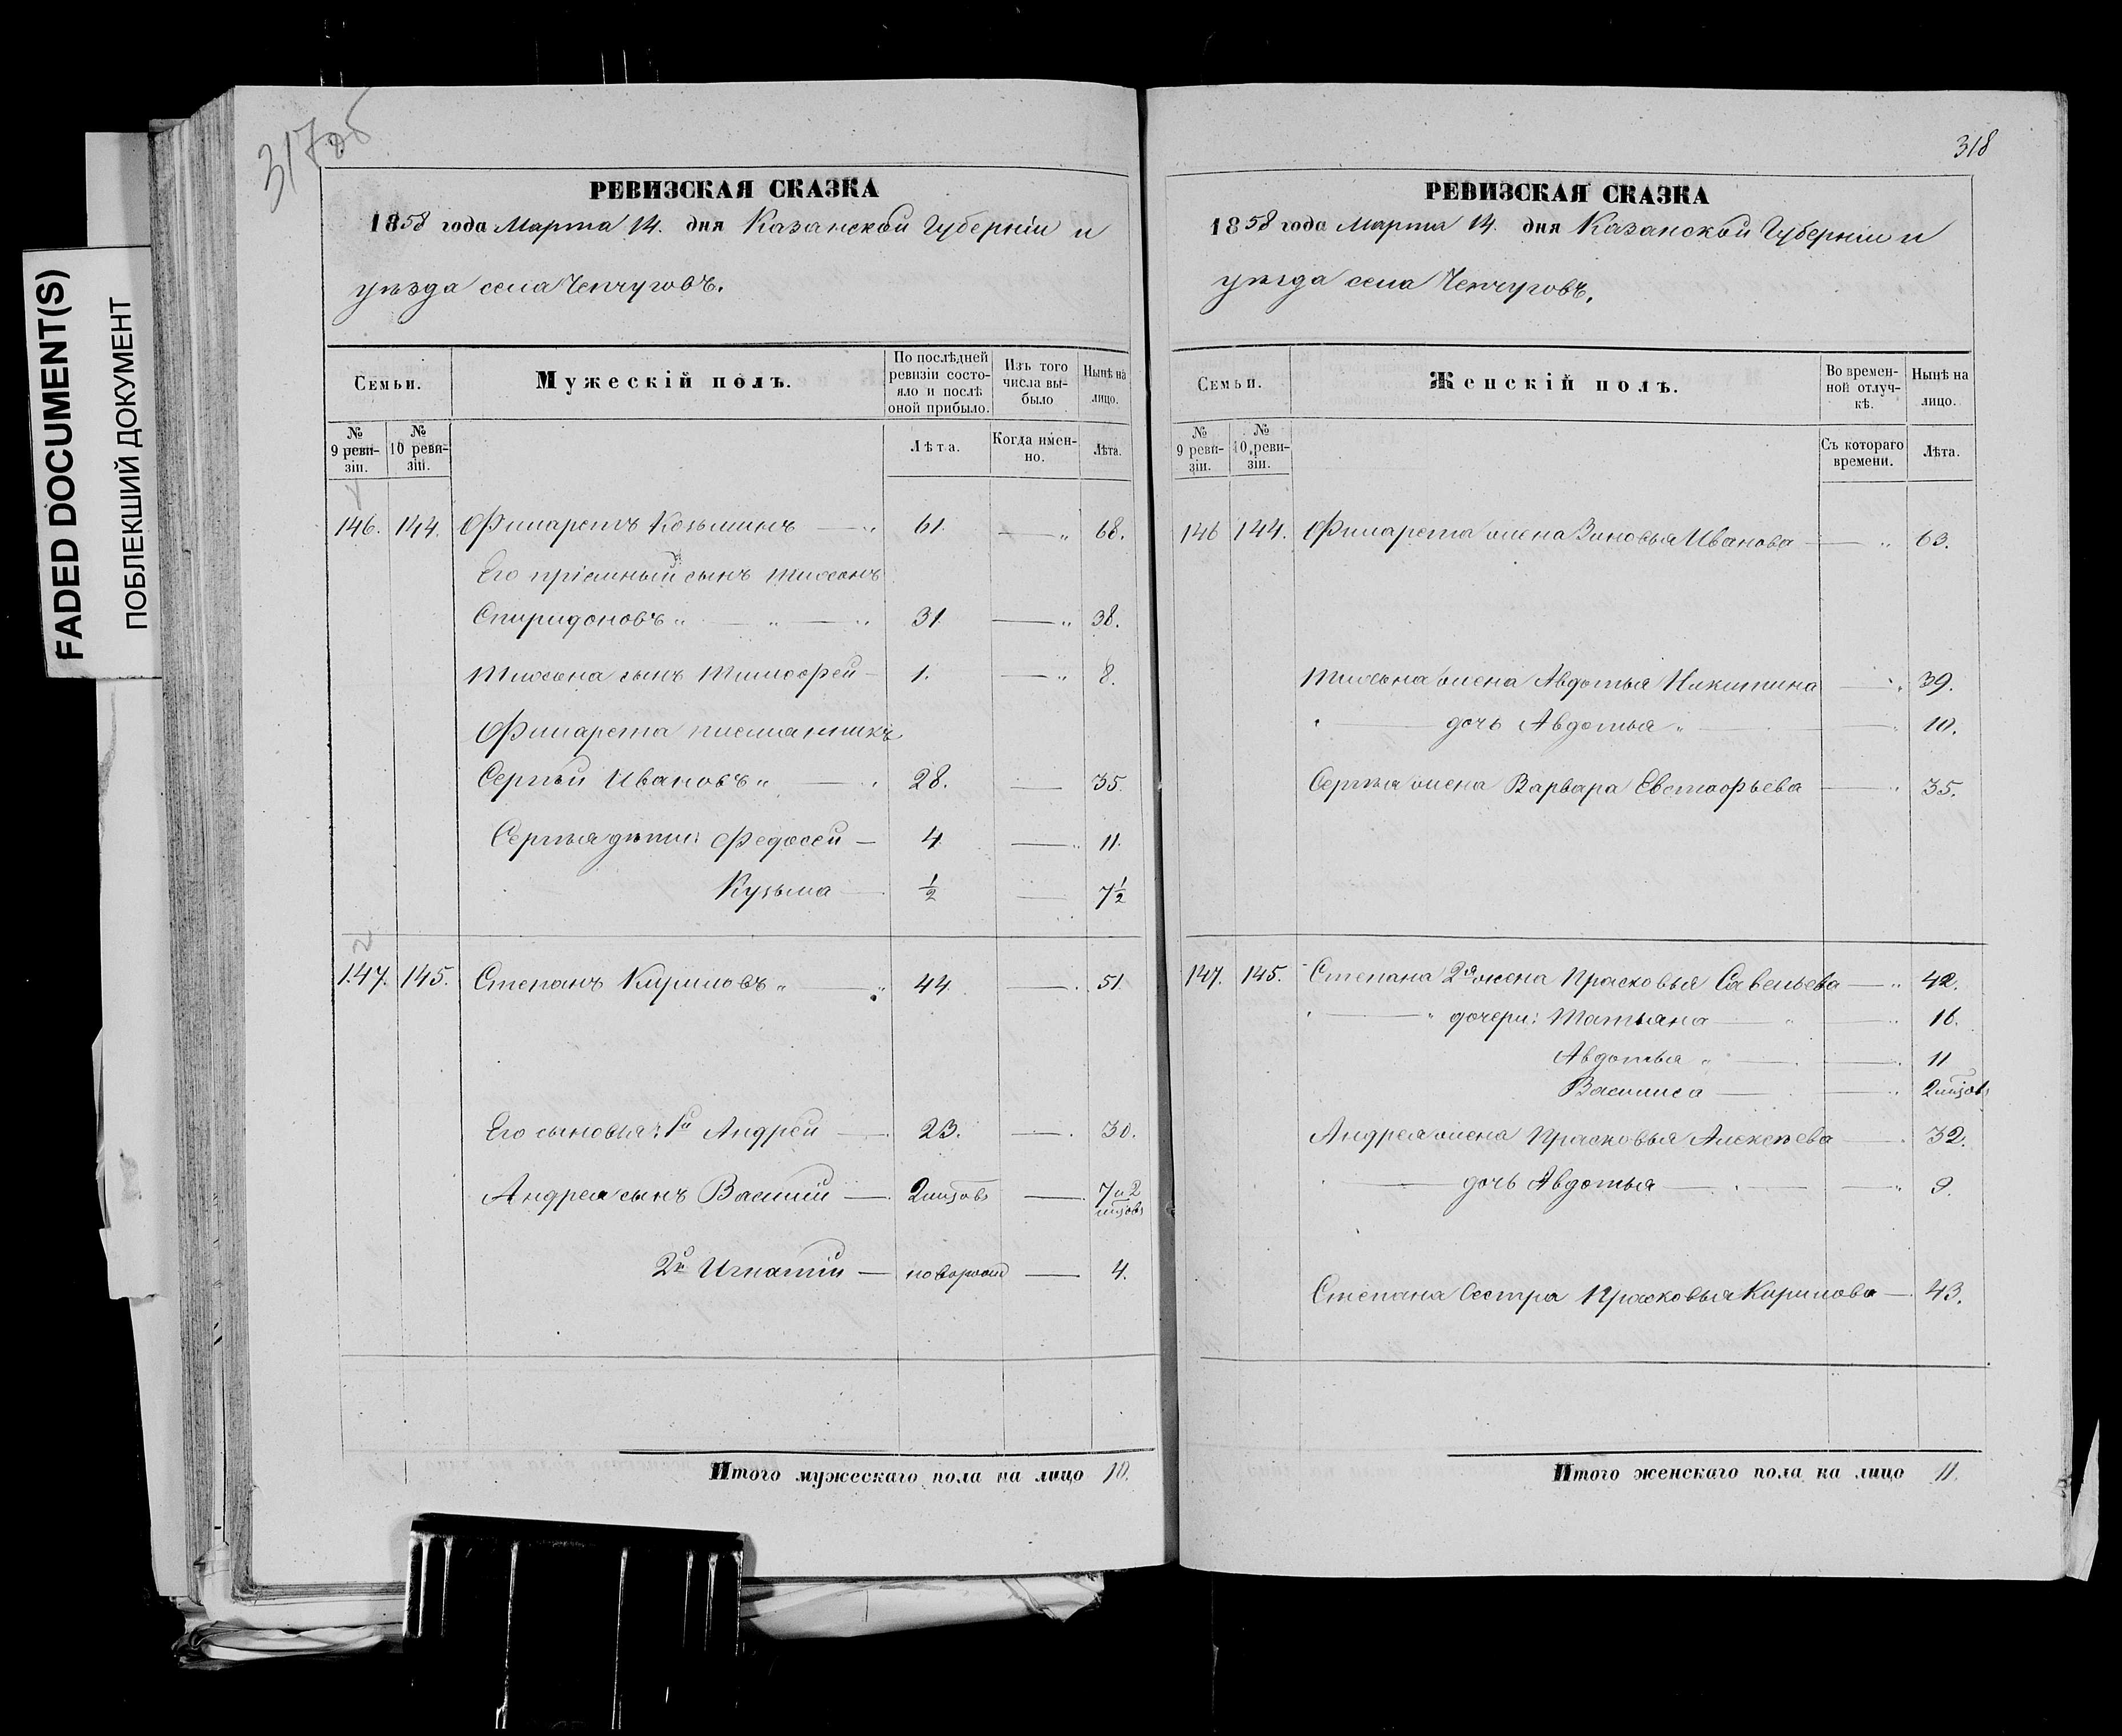 FADED DOCUMENT(S)
ПОБЛЕКШИЙ ДОКУМЕНТ
317об
РЕВИЗСКАЯ СКАЗКА
1858 года Марта 14. дня Казанской Губерніи и
уѣзда села Чепчуговъ.
Семьи. Мужескій полъ. По послѣдней ревизіи состояло и послѣ оной прибыло. Изъ того числа выбыло Нынѣ на лицо.
№ 9 ревизіи. № 10 ревизіи. Лѣта. Когда именно. Лѣта.
146. 144. Филаретъ Козьминъ 61. 68.
Его пріемный сынъ
Спиридоновъ 31 38.
сынъ Тимофей 1. 8.
Филарета племянникъ
Сергѣй Ивановъ 28. 35.
Сергѣя дѣти: Федосей 4 11.
Кузьма ½ 7½
2
147. 145. Степанъ Кириловъ 44 51
Его сыновья: 1й Андрей 23. 30.
Андрея сынъ Василій 2 мцовъ 7 и 2 мцовъ
2й Игнатій новорож 4.
Итого мужескаго пола на лицо 10.
318
РЕВИЗСКАЯ СКАЗКА
1858 года Марта 14. дня Казанской Губерніи и
уѣзда села Чепчуговъ.
Семьи. Женскій полъ. Во временной отлучкѣ. Нынѣ на лицо.
№ 9 ревизіи. № 10 ревизіи. Съ котораго времени. Лѣта.
146 144. Филарета жена Зиновья Иванова 63.
жена Авдотья Никитина 39.
дочь Авдотья 10.
Сергѣя жена Варвара Евстафьева 35.
147. 145. Степана 2я жена Прасковья Савельева 42.
дочери: Татьяна 16.
Авдотья 11
Василиса 2 мцовъ
Андрея жена Прасковья Алексѣева 32.
дочь Авдотья 9.
Степана Сестра Прасковья Кирилова 43.
Итого женскаго пола на лицо 11.